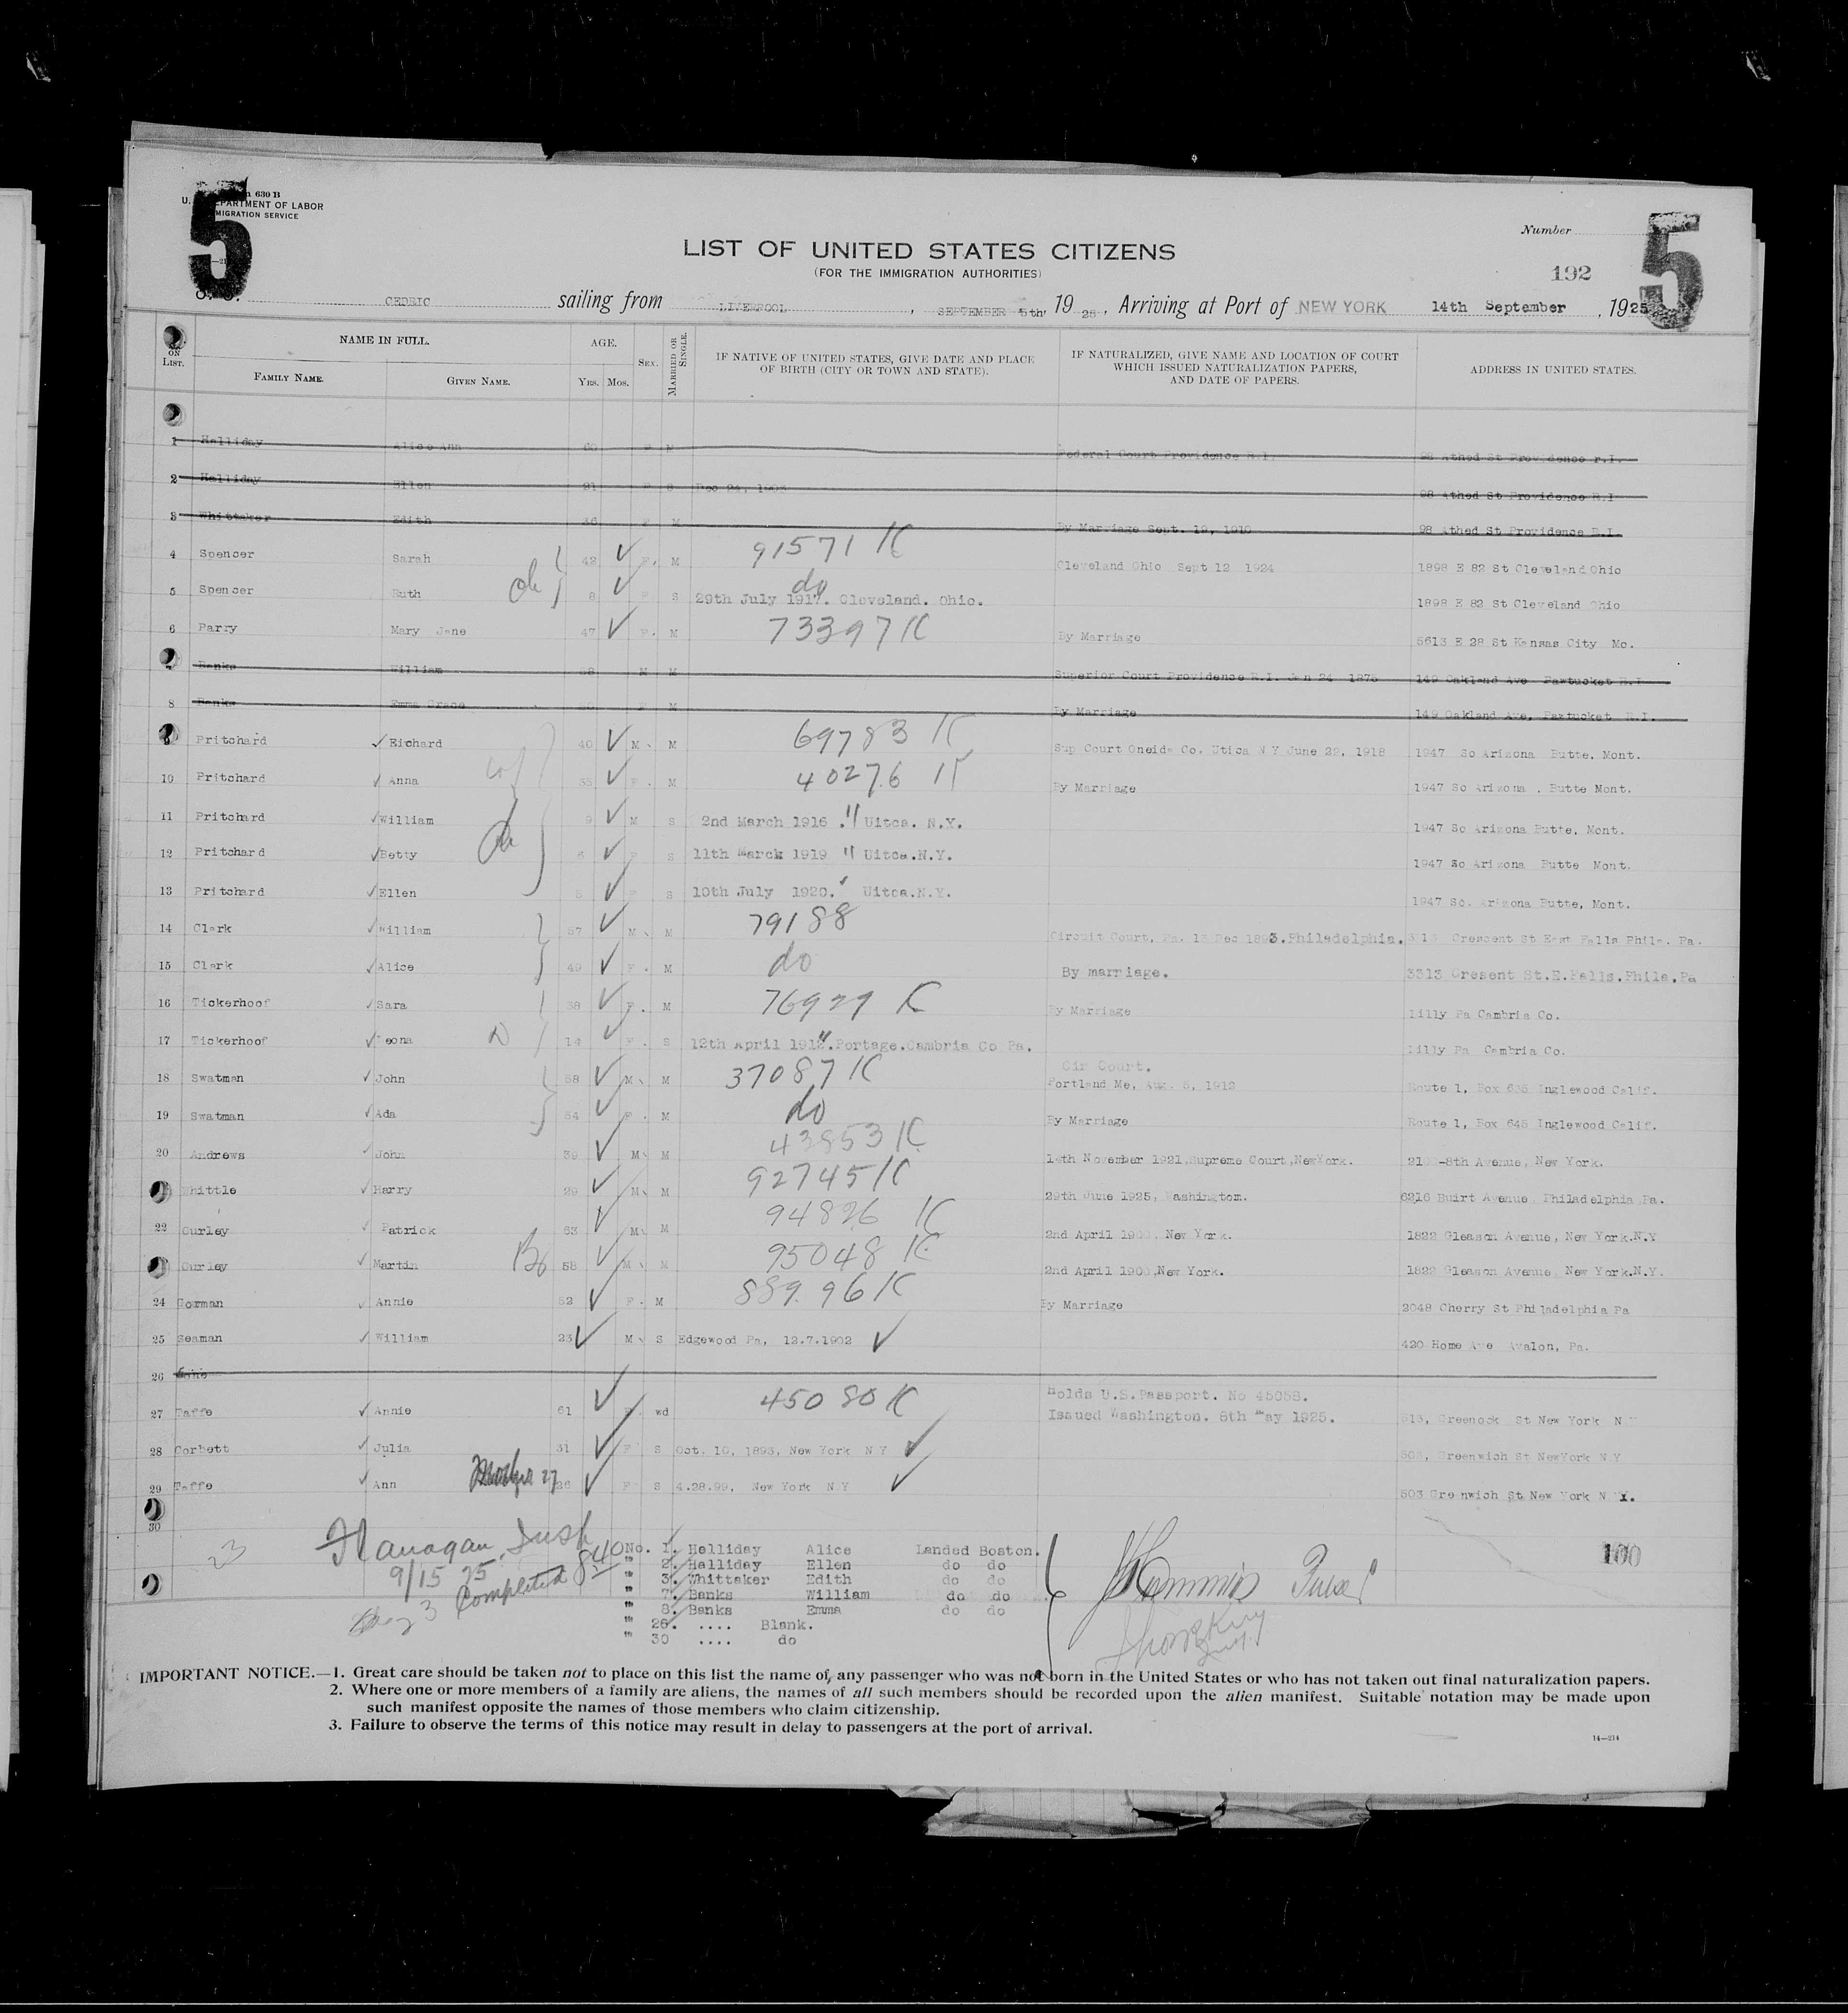 5
630 B
U. DEPARTMENT OF LABOR
IMMIGRATION SERVICE
Number
5
192
LIST OF UNITED STATES CITIZENS
(FOR THE IMMIGRATION AUTHORITIES)
S. S. CEDRIC sailing from LIVERPOOL, SEPTEMBER 5th, 1925, Arriving at Port of NEW YORK 14th September, 1925
ON LIST. NAME IN FULL. FAMILY NAME. GIVEN NAME. AGE. YRS. MOS. SEX. MARRIED OR SINGLE. IF NATIVE OF UNITED STATES, GIVE DATE AND PLACE OF BIRTH (CITY OR TOWN AND STATE). IF NATURALIZED, GIVE NAME AND LOCATION OF COURT WHICH ISSUED NATURALIZATION PAPERS, AND DATE OF PAPERS. ADDRESS IN UNITED STATES.
1 Halliday Alice Ann 60 F M Federal Court Providence R.I. 98 Athed St Providence r.I.
2 Halliday Ellen 21 F S Dec 24, 98 Athed St Providence R.I
3 Whittaker Edith 36 F M By Marriage Sept. 19, 1910 98 Athed St Providence R.I.
4 Spencer Sarah 42 F. M 91571 K Cleveland Ohio Sept 12 1924 1898 E 82 St Cleveland Ohio
5 Spencer Ruth ok 8 F S do 29th July 1917. Cleveland. Ohio. 1898 E 82 St Cleveland Ohio
6 Parry Mary Jane 47 F. M 73397 K By Marriage 5613 E 28 St Kansas City Mo.
7 Banks William 58 M M Superior Court Providence R.I. Jan 24 1875 149 Oakland Ave Pawtucket R.I
8 Banks Emma Grace F M By Marriage 149 Oakland Ave, Pawtucket R.I.
9 Pritchard Eichard 40 M M 69783 K Sup Court Oneida Co. Utica N Y June 22, 1918 1947 So Arizona Butte, Mont.
10 Pritchard Anna 35 F. M 40276 K By Marriage 1947 So Arizona . Butte Mont.
11 Pritchard William 9 M S 2nd March 1916 . " Uitca. N.Y. 1947 So Arizona Butte, Mont.
12 Pritchard Betty 6 F S 11th March 1919 " Uitca.N.Y. 1947 So Arizona Butte Mont.
13 Pritchard Ellen 5 F S 10th July 1920. Uitca.N.Y. 1947 So. Arizona Butte, Mont.
14 Clark William 57 M M 79188 Circuit Court, Pa. Dec 1893.Philadelphia. 3313 Crescent St East Falls Phila. Pa.
15 Clark Alice 49 F. M do By marriage. 3313 Cresent St.E.Falls.Phila.Pa
16 Tickerhoof Sara 38 F. M 76929 K By Marriage Lilly Pa Cambria Co.
17 Tickerhoof Leona 14 F. S 12th April 191 .Portage.Cambria Co Pa. Lilly Pa Cambria Co.
18 Swatman John 58 M M 37087 K Cir Court. Portland Me, Aug. 5, 1912 Route 1, Box 635 Inglewood Calif.
19 Swatman Ada 54 F. M do By Marriage Route 1, Box 645 Inglewood Calif.
20 Andrews John 39 M M 43853 K 14th November 1921,Supreme Court,NewYork. -8th Avenue, New York.
Whittle Harry 29 M M 92745 K 29th June 1925, Washington. 6216 Buirt Avenue Philadelphia Pa.
22 Curley Patrick 63 M M 94826 K 2nd April 1900, New York. 1822 Gleason Avenue, New York.N.Y
Curley Martin 58 M M 95048 K 2nd April 1900,New York. 1822 Gleason Avenue, New York.N.Y.
24 Gorman Annie 52 F. M 88996 K By Marriage 2048 Cherry St Philadelphia Pa
25 Seaman William 23 M S Edgewood Pa, 12.7.1902 420 Home Ave Avalon, Pa.
26
27 Taffe Annie 61 F. wd 45080 K Holds U.S.Passport. No 45058. Issued Washington. 8th May 1925. 513, Greenock St New York N Y
28 Corbett Julia 31 F S Oct. 10, 1893, New York N Y 503, Greenwich St NewYork N Y
29 Taffe Ann 27 26 F S 4.28.99. New York N.Y 503 Greenwich St New York N Y.
30
23
Flanagan, Insp.
9/15 25
Completed 840
No. 1. Halliday Alice Landed Boston.
" 2. Halliday Ellen do do
" 3. Whittaker Edith do do
" 7. Banks William do do
" 8. Banks Emma do do
" 26. .... Blank.
" 30 .... do
100
IMPORTANT NOTICE.—1. Great care should be taken not to place on this list the name of any passenger who was not born in the United States or who has not taken out final naturalization papers.
2. Where one or more members of a family are aliens, the names of all such members should be recorded upon the alien manifest. Suitable notation may be made upon
such manifest opposite the names of those members who claim citizenship.
3. Failure to observe the terms of this notice may result in delay to passengers at the port of arrival.
14—214